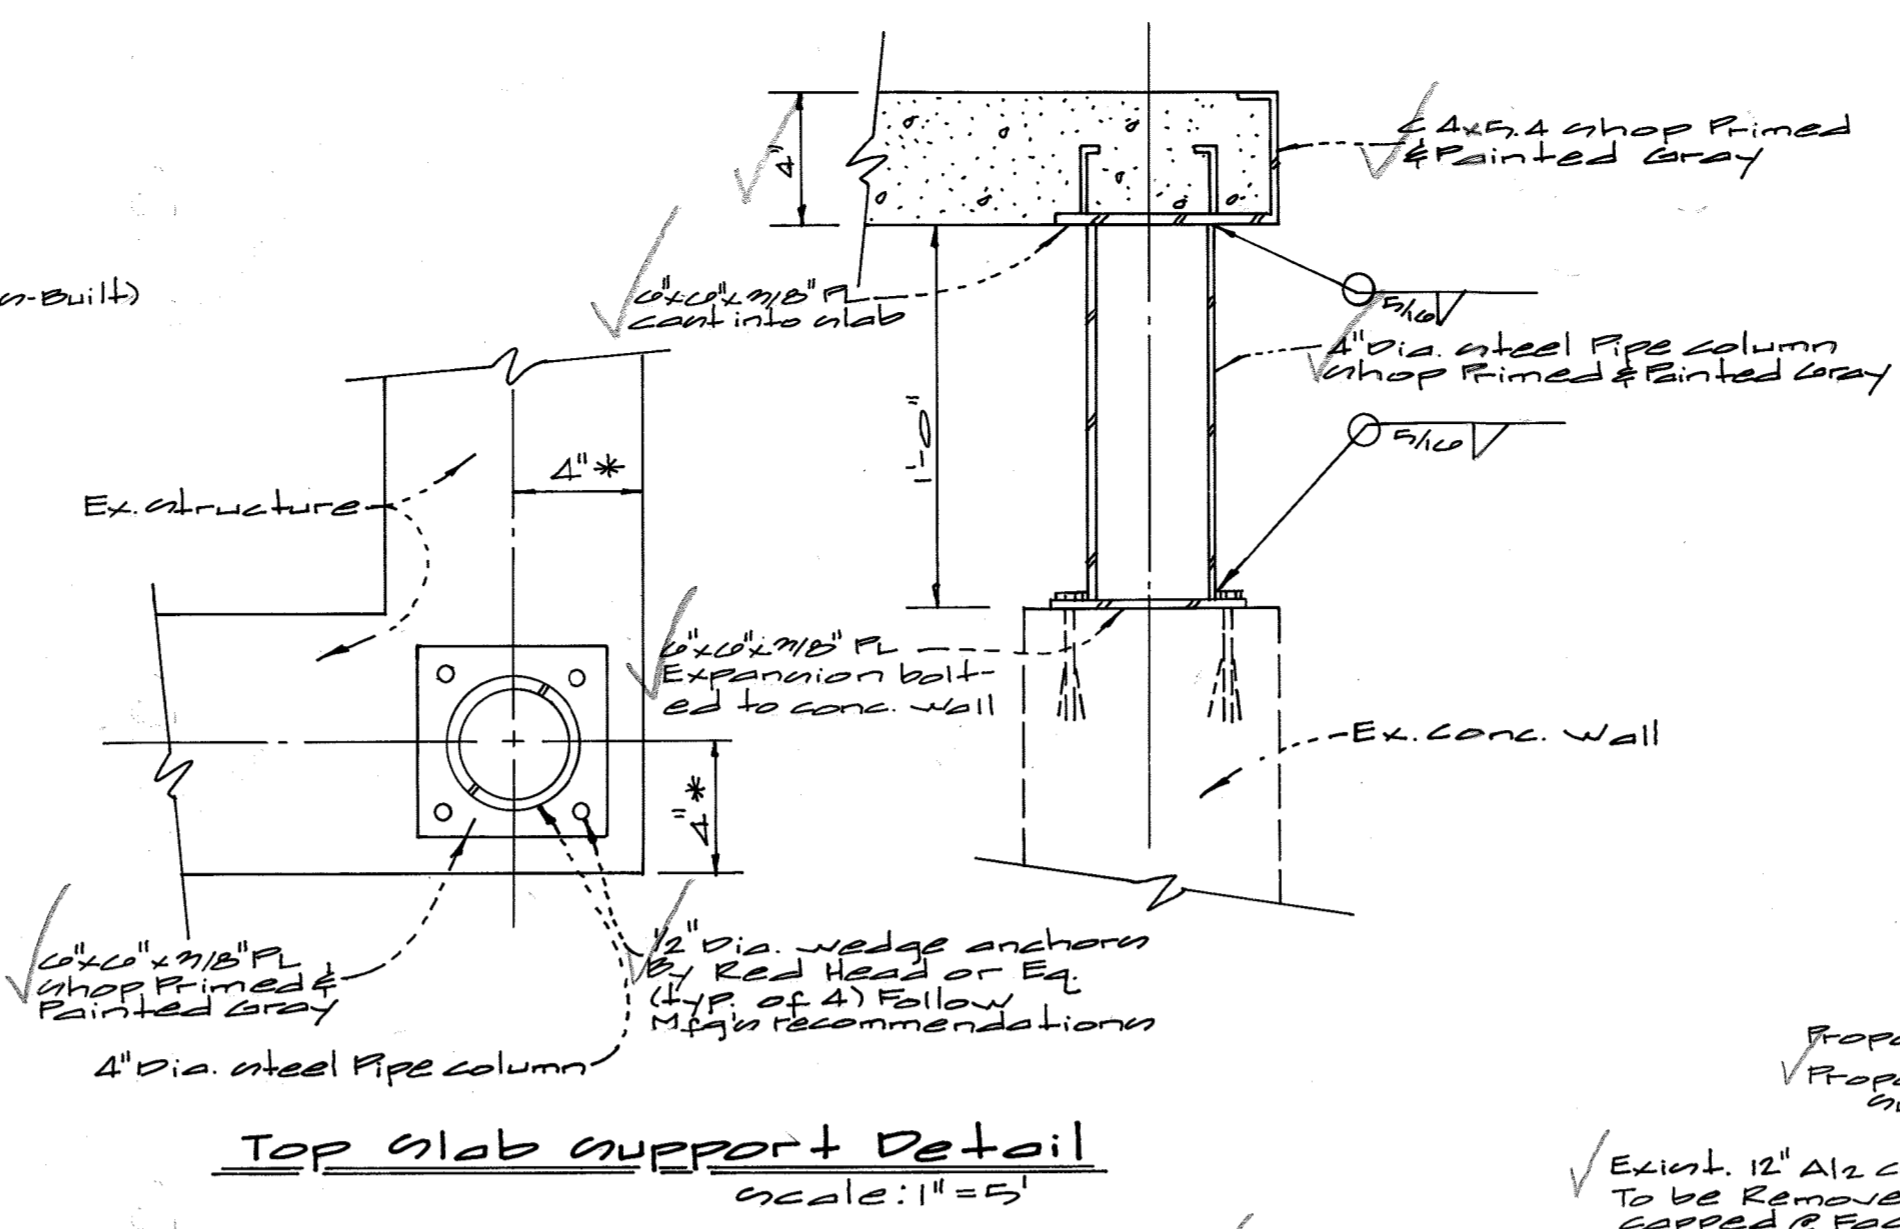 4"
C 4x5.4 shop Primed
& Painted Gray
6"x6"x3/8" PL
cast into slab
5/16
4" Dia. steel Pipe column
shop Primed & Painted Gray
1'-0"
5/16
s-Built)
4"*
Ex. structure
6"x6"x3/8" PL
Expansion bolt-
ed to conc. wall
Ex. Conc. Wall
4"*
6"x6"x3/8" PL
shop Primed &
Painted Gray
1/2" Dia. wedge anchors
By Red Head or Eq.
(typ. of 4) Follow
Mfg's recommendations
4" Dia. steel Pipe column
Top Slab Support Detail
scale: 1" = 5'
Exist. 12"
To be